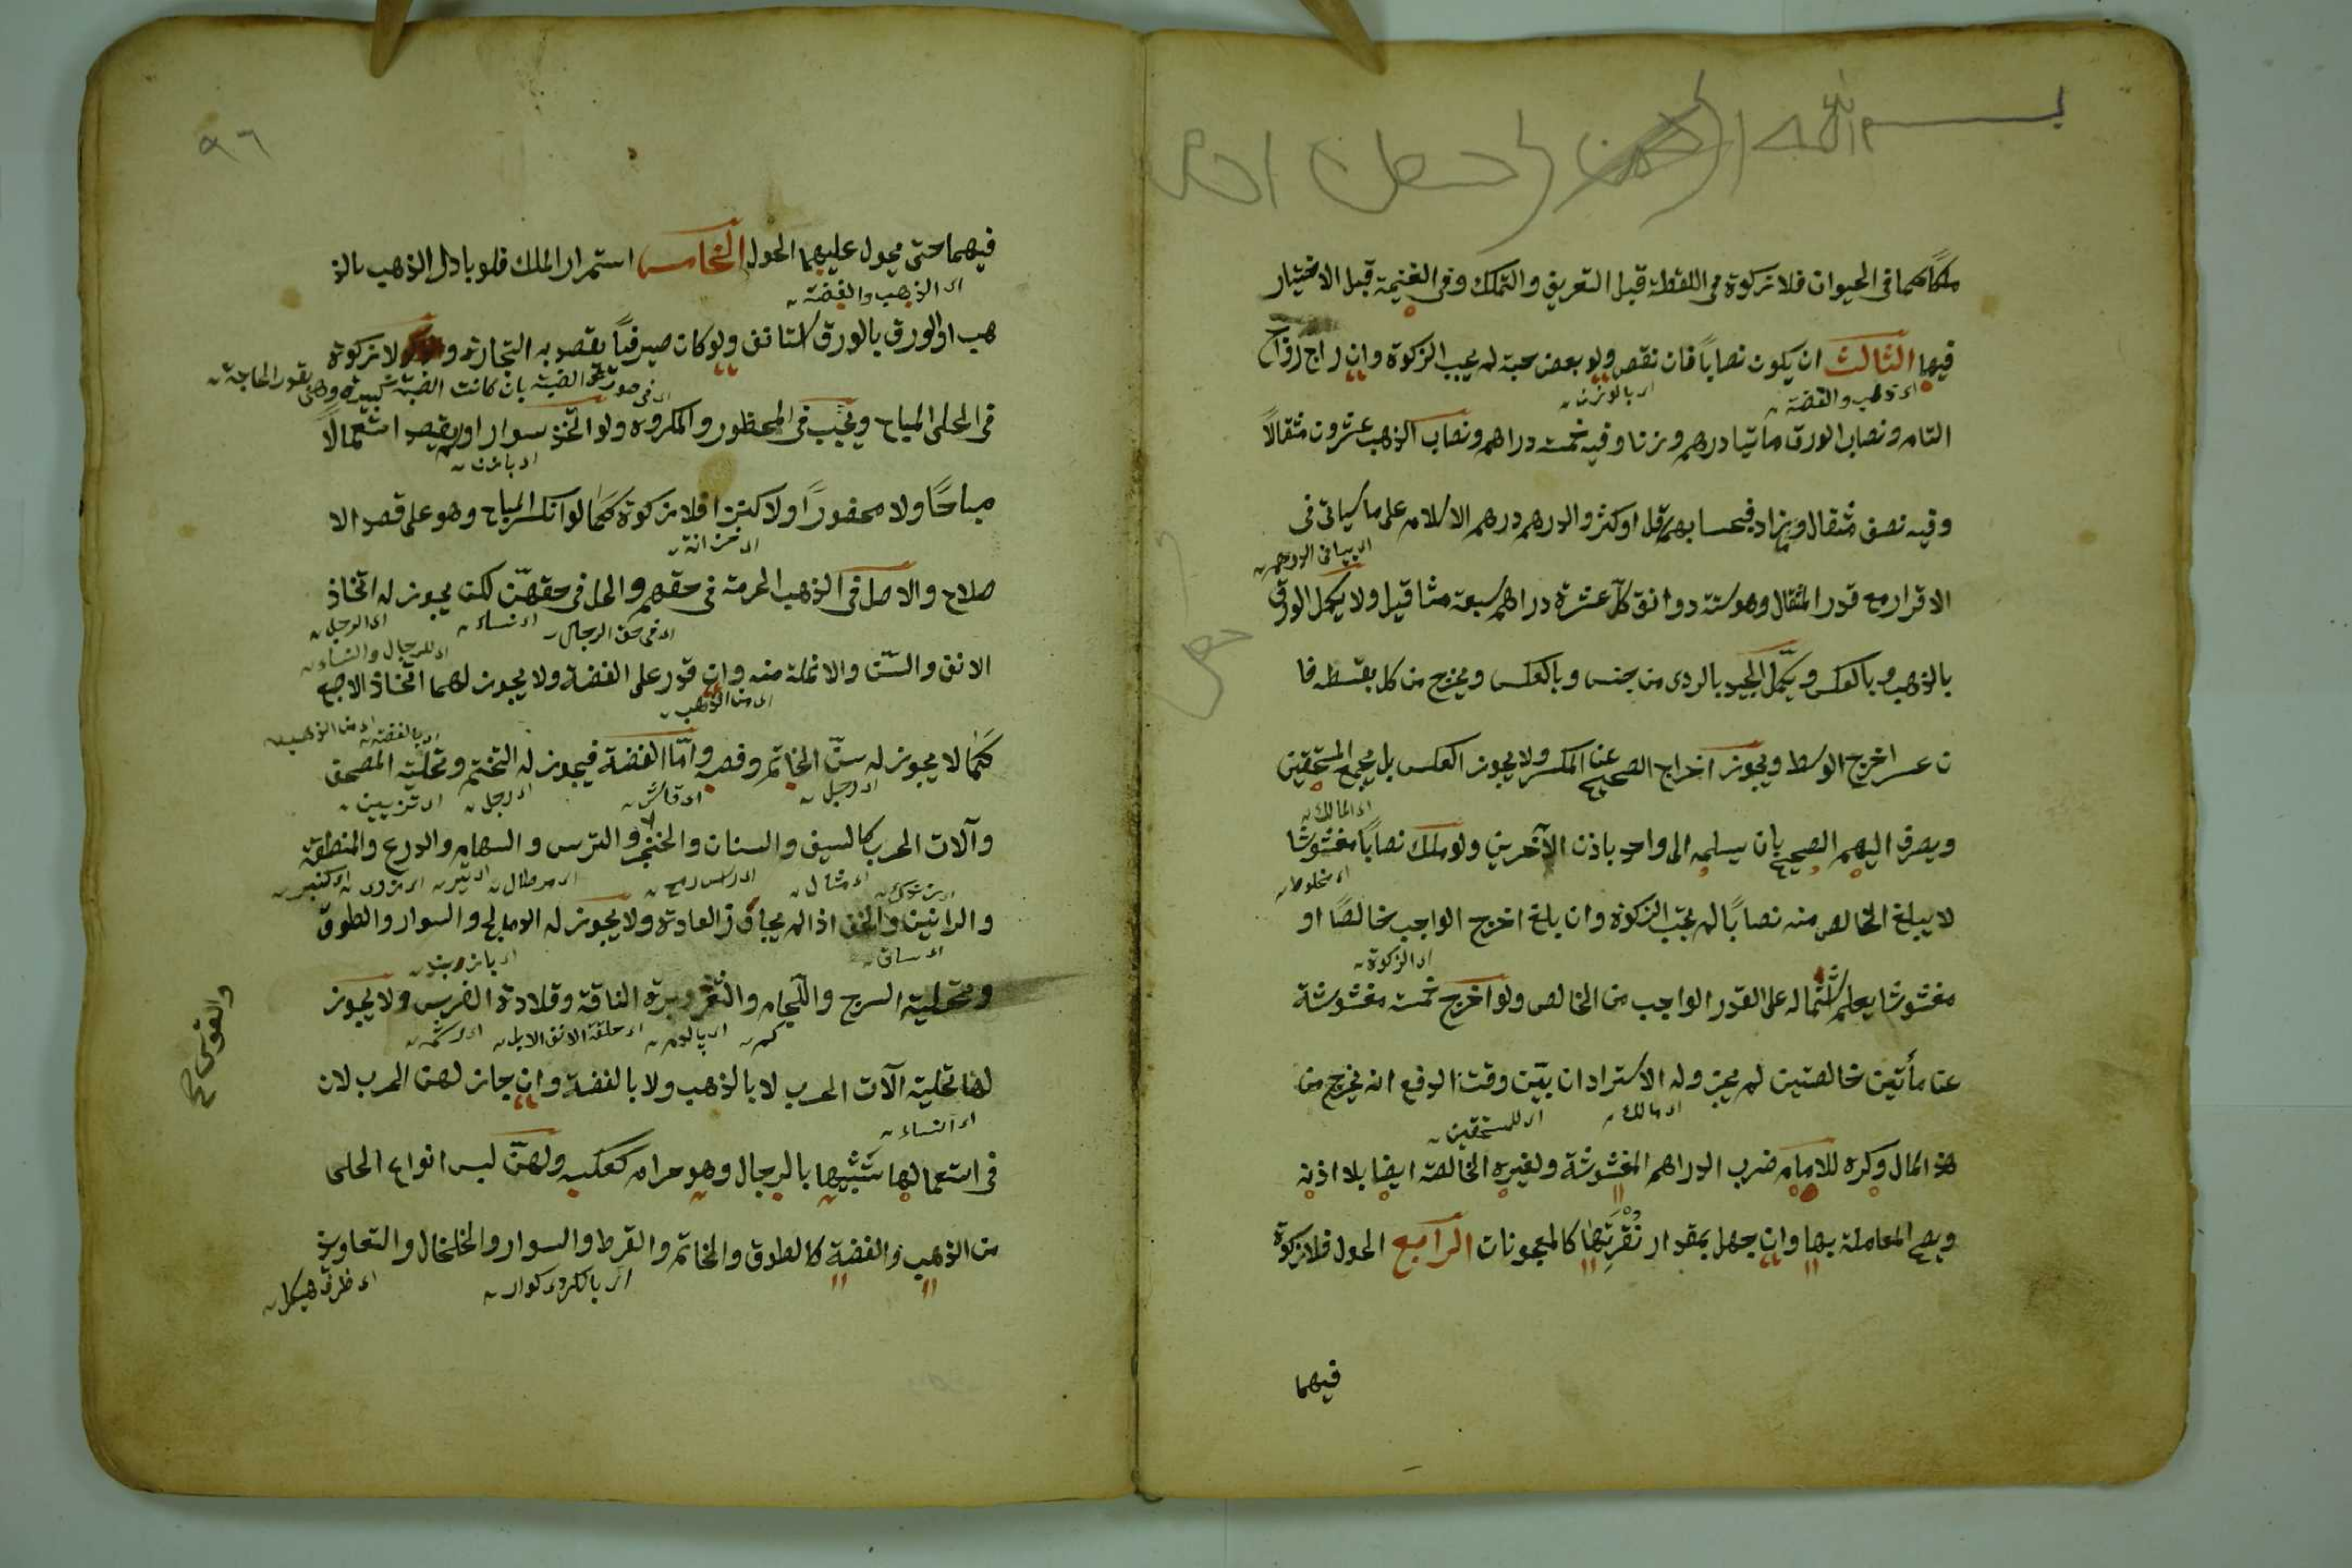 بسم الله الرحمن
ملكا كما في الحيوان فلا زكوة في اللقطة قبل التعريف والتملك وفي الغنيمة قبل الاختيار
فيها الثالث ان يكون نصاباً فان نقص ولو بعض حبة لم يجب الزكوة وان راج رواج
اى ذهب والفضة
اى بالوزن
التام ونصاب الورق ماتيا درهم وزنا وفيه خمسة دراهم ونصاب الذهب عشرون مثقالاً
وفيه نصف مثقال ويزاد فبحسابهم قل او كثر والدرهم درهم الاسلام على ما سياتى فى
اى بيان الدرهم
الاقرار مع قدر المثقال وهو ستة دوانق كل عشرة دراهم سبعة مثاقيل ولا يكمل الورق
بالذهب وبالعكس ويكمل الجيد بالردى من جنس وبالعكس ويخرج من كل بقسطه فا
ن عسر اخرج الوسط ويجوز اخراج الصحيح عن المكسر ولا يجوز العكس بل يجمع المستحقين
اى المالك
ويصرف اليهم الصحيح بان يسلمه الى واحد باذن الآخرين ولو ملك نصاباً مغشوشا
اى مخلوط
لا يبلغ الخالص منه نصاباً لم يجب الزكوة وان بلغ اخرج الواجب خالصًا او
اى الزكوة
مغشوشا يعلم اشتماله على القدر الواجب من الخالص ولو اخرج خمسة مغشوشة
عن مأتين خالصتين لم يجز وله الاسترداد ان بيّن وقت الدفع انه يخرج من
اى مالك
اى للمستحقين
هذ المال وكره للامام ضرب الدراهم المغشوشة ولغيره الخالصة ايضا بلا اذنه
ويصح المعاملة بها وان جهل بمقدار نقرتها كالمعجونات الرابع الحول فلا زكوة
فيهما
٩٦
فيهما حتى يحول عليهما الحول الخامس استمرار الملك فلو بادل الذهب بالذ
اى الذهب والفضة
هب او الورق بالورق استانف ولو كان صيرفياً يقصد به التجارة و لا زكوة
بان كانت الضبة كبيرة وهى بقدر الحاجة
فى الحلى المباح ويجب فى المحظور والمكروه ولو اتخذ سوارا ولم يقصد استعمالًا
مباحًا ولا محفورًا ولا كنزا فلا زكوة كما لو انكسر المباح وهو على قصد الا
اى خزانة
صلاح والاصل فى الذهب الحرمة فى حقهم والحل فى حقهنّ لكن يجوز له اتخاذ
اى فى حق الرجال
اى نساء
اى الرجل
الانف والسّن والانملة منه وان قدر على الفضة ولا يجوز لهما اتخاذ الاصبع
اى للرجال والنساء
اى من الذهب
كما لا يجوز له سنّ الخاتم وفصه وامّا الفضة فيجوز له التختم وتحلية المصحف
اى بالفضة
اى من الذهب
اى رجل
اى قاش
اى رجل
اى تزيين
وآلات الحرب كالسيف والسنان والخنجر والترس والسهام والدرع والمنطقة
اى مثال
اى تير
والرانين والخف اذا لم يجاوز العادة ولا يجوز له الدمالج والسوار والطوق
اى ساق
اى بازوبند
وتحلية السرج واللجام والثفر وبرة الناقة وقلادة الفرس ولا يجوز
اى پالوم
اى حلقة الانف الابل
لها تحلية آلات الحرب لا بالذهب ولا بالفضة وان جاز لهن الحرب لان
اى النساء
فى استعمالها تشبيها بالرجال وهو حرام كعكسه ولهنّ لبس انواع الحلى
من الذهب والفضة كالطوق والخاتم والقرط والسوار والخلخال والتعاويذ
اى ظرف هيكل
والقوس صح